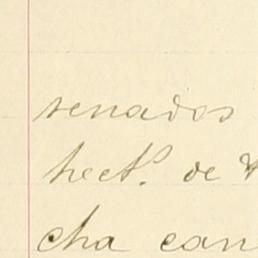 senados
hect.º de
cha can